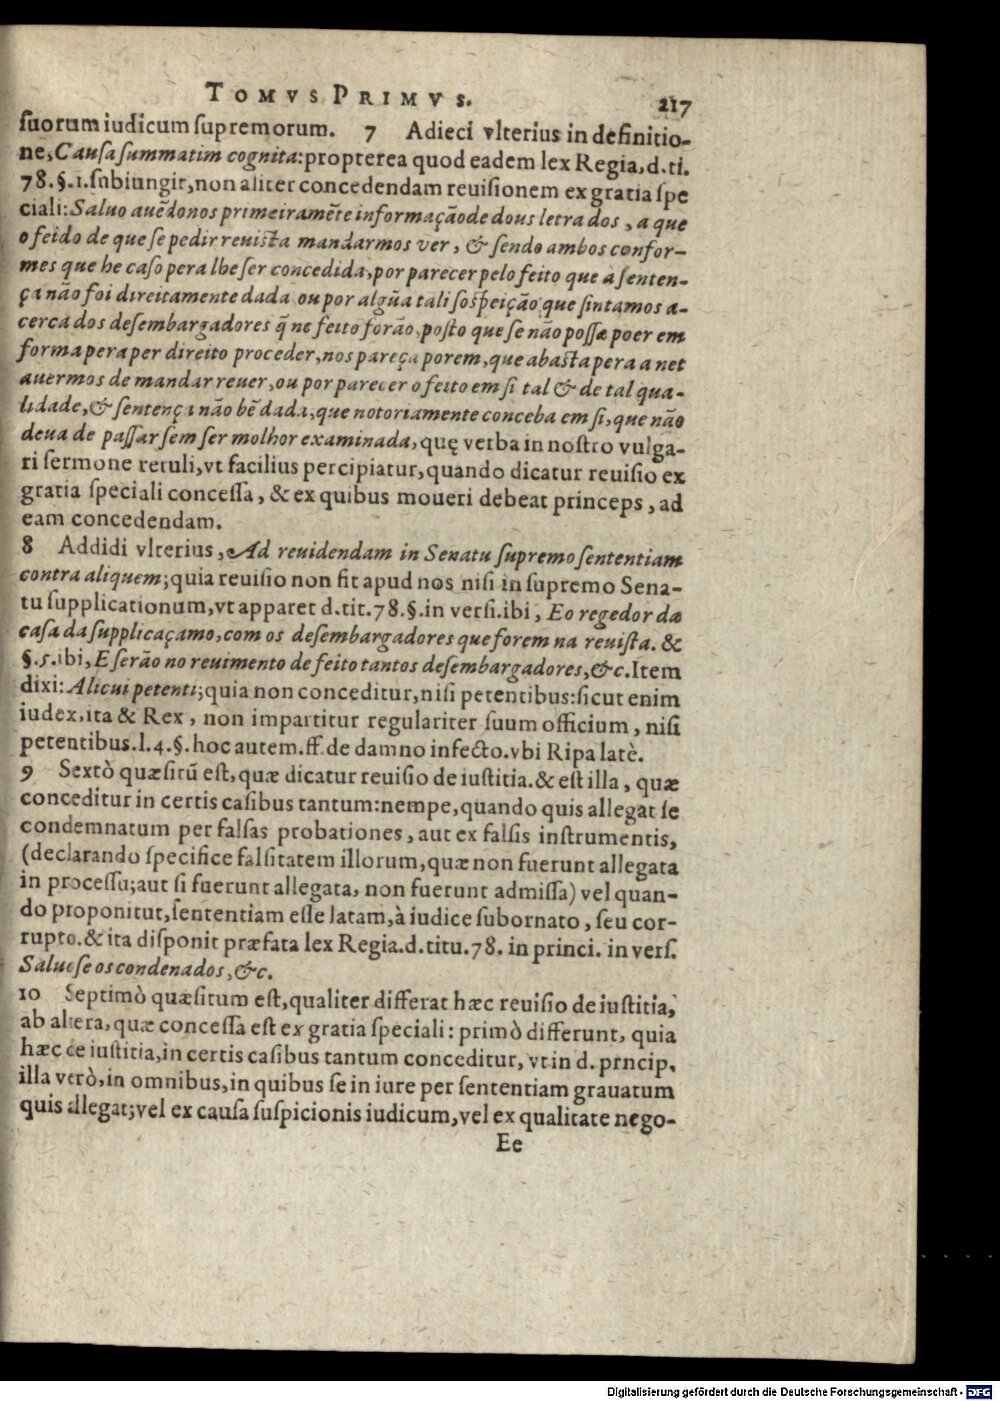 TOMVS PRIMVS.
217
ſuorum iudicum ſupremorum. 7 Adieci vlterius in definitio-
ne, Cauſa ſummatim cognita: propterea quod eadem lex Regia, d. ti.
78. §. 1. ſubiungit, non aliter concedendam reuiſionem ex gratia ſpe
ciali: Saluo auẽdo nos primeiramẽte informação de dous letrados, a que
o feido de que ſe pedir reuiſta mandarmos ver, & ſendo ambos confor-
mes que he caſo pera lhe ſer concedida, por parecer pelo feito que a ſenten-
ça não foi direitamente dada ou por algũa tal i ſoſpeição que ſintamos a-
cerca dos deſembargadores q̃ no feito forão, poſto que ſe não poſſa poer em
forma pera per direito proceder, nos pareça porem, que abaſta pera a net
auermos de mandar reuer, ou por parecer o feito em ſi tal & de tal qua-
lidade, & ſentença não bẽ dada, que notoriamente conceba em ſi, que não
deua de paſſar ſem ſer molhor examinada, quę verba in noſtro vulga-
ri ſermone retuli, vt facilius percipiatur, quando dicatur reuiſio ex
gratia ſpeciali conceſſa, & ex quibus moueri debeat princeps, ad
eam concedendam.
8 Addidi vlterius, Ad reuidendam in Senatu ſupremo ſententiam
contra aliquem; quia reuiſio non fit apud nos niſi in ſupremo Sena-
tu ſupplicationum, vt apparet d. tit. 78. §. in verſi. ibi, Eo regedor da
caſa da ſupplicaçamo, com os deſembargadores que forem na reuiſta. &
§. 5. ibi, E ſerão no reuimento de feito tantos deſembargadores, &c. Item
dixi: Alicui petenti; quia non conceditur, niſi petentibus: ſicut enim
iudex, ita & Rex, non impartitur regulariter ſuum officium, niſi
petentibus. l. 4. §. hoc autem. ff. de damno infecto. vbi Ripa latè.
9 Sextò quæſitũ eſt, quæ dicatur reuiſio de iuſtitia. & eſt illa, quæ
conceditur in certis caſibus tantum: nempe, quando quis allegat ſe
condemnatum per falſas probationes, aut ex falſis inſtrumentis,
(declarando ſpecifice falſitatem illorum, quæ non fuerunt allegata
in proceſſu; aut ſi fuerunt allegata, non fuerunt admiſſa) vel quan-
do proponitur, ſententiam eſſe latam, à iudice ſubornato, ſeu cor-
rupto. & ita diſponit præfata lex Regia. d. titu. 78. in princi. in verſ.
Saluo ſe os condenados, &c.
10 Septimò quæſitum eſt, qualiter differat hæc reuiſio de iuſtitia,
ab altera, quæ conceſſa eſt ex gratia ſpeciali: primò differunt, quia
hæc de iuſtitia, in certis caſibus tantum conceditur, vt in d. prncip.
illa verò, in omnibus, in quibus ſe in iure per ſententiam grauatum
quis allegat; vel ex cauſa ſuſpicionis iudicum, vel ex qualitate nego-
Ee
Digitalisierung gefördert durch die Deutsche Forschungsgemeinschaft - DFG